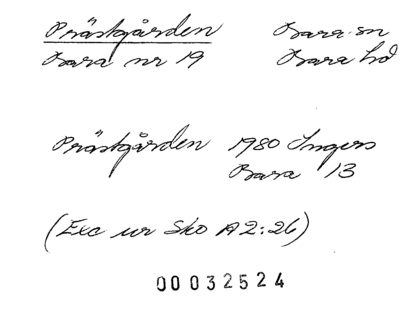 Prästgården Bara sn
Bara nr 19 Bara hd
Prästgården 1980 Ingers
Bara 13
(Exc ur Sko A2:26)
00032524